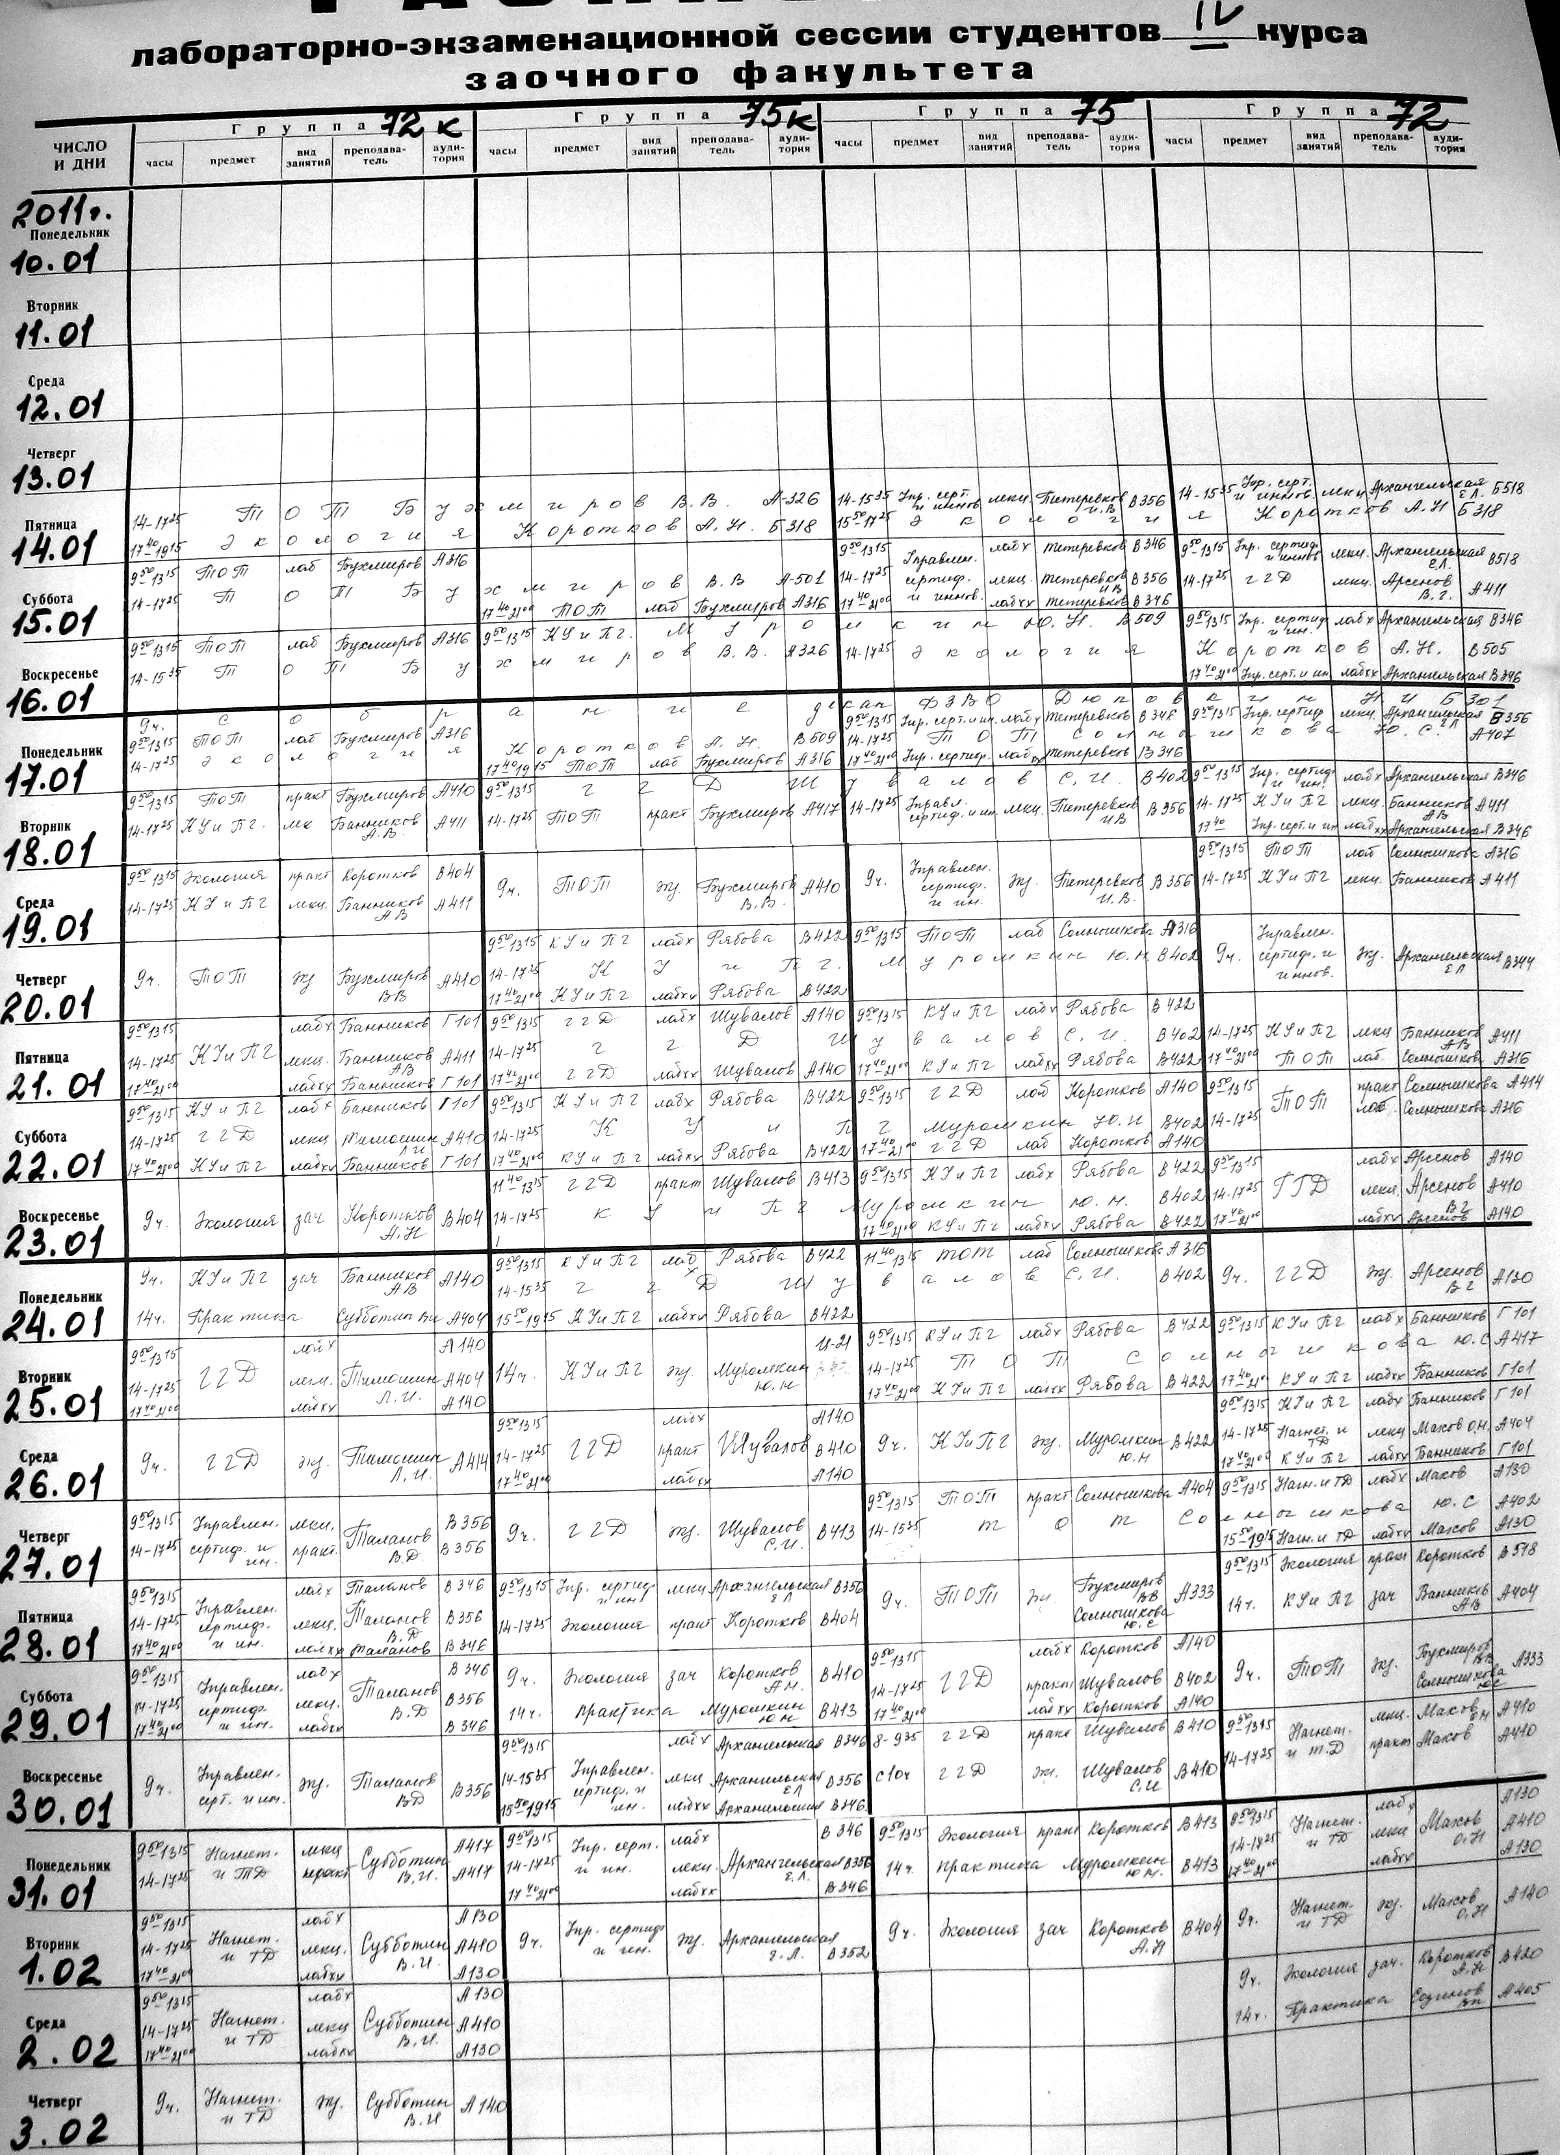 лабораторно-экзаменационной сессии студентов IV курса
заочного факультета
ЧИСЛО И ДНИ
Группа 72к
Группа 75к
Группа 75
Группа 72
часы предмет вид занятий преподаватель аудитория
часы предмет вид занятий преподаватель аудитория
часы предмет вид занятий преподаватель аудитория
часы предмет вид занятий преподаватель аудитория
2011г.
Понедельник
10.01
Вторник
11.01
Среда
12.01
Четверг
13.01
Пятница
14.01
14-17 25 ТОТ Бухмиров В.В. А-326
17 40-19 15 Экология Коротков А.Н. Б318
14-15 35 Упр. серт. и иннов лекц Тетеревков И.В В356
15 50-17 25 Экология Коротков А.Н Б318
14-15 35 Упр. серт. и иннов лекц Архангельская Е.Л. Б518
Суббота
15.01
9 50-13 15 ТОТ лаб Бухмиров А316
14-17 25 ТОТ Бухмиров В.В А-501
17 40-21 00 ТОТ лаб Бухмиров А316
9 50-13 15 Управлен. сертиф. и иннов. лабх Тетеревков В346
14-17 25 лекц. Тетеревков И В В356
17 40-21 00 лабхх Тетеревков В346
9 50-13 15 Упр. сертиф и иннов лекц. Архангельская Е.Л. В518
14-17 25 ГГД лекц. Арсенов В.Г. А411
Воскресенье
16.01
9 50-13 15 ТОТ лаб Бухмиров А316
14-15 35 ТОТ Бухмиров В.В. А326
9 50-13 15 КУ и ПГ. Муромкин Ю.Н. В509
14-17 25 Экология Коротков А.Н. В505
9 50-13 15 Упр. сертиф и ин. лабх Архангельская В346
17 40-21 00 Упр. серт. и ин лабхх Архангельская В346
Понедельник
17.01
9ч. собрание декан ФЗВО Дюповкин Н И Б301
9 50-13 15 ТОТ лаб Бухмиров А316
14-17 25 Экология Коротков А.Н. В509
17 40-19 15 ТОТ лаб Бухмиров А316
9 50-13 15 Упр. серт. и ин. лабх Тетеревков В348
14-17 25 ТОТ Солнышкова Ю.С. А407
17 40-21 00 Упр. сертиф. лабхх Тетеревков В346
9 50-13 15 Упр. сертиф лекц. Архангельская Е Л В356
Вторник
18.01
9 50-13 15 ТОТ практ Бухмиров А410
14-17 25 КУ и ПГ. лк Банников А.В. А411
9 50-13 15 ГГД Шувалов С.И. В402
14-17 25 ТОТ практ Бухмиров А417
14-17 25 Управл. сертиф. и ин лекц. Тетеревков И В В356
9 50-13 15 Упр. сертиф и ин. лабх Архангельская В346
14-17 25 КУ и ПГ лекц. Банников А В А411
17 40 Упр. серт. и ин лабхх Архангельская В346
Среда
19.01
9 50-13 15 Экология практ Коротков В404
14-17 25 КУ и ПГ лекц. Банников А В А411
9ч. ТОТ экз. Бухмиров В.В. А410
9ч. Управлен. сертиф. и ин. экз. Тетеревков И.В. В356
9 50-13 15 ТОТ лаб Солнышкова А316
14-17 25 КУ и ПГ лекц. Банников А411
Четверг
20.01
9ч. ТОТ экз Бухмиров В В А410
9 50-13 15 КУ и ПГ лабх Рябова В422
14-17 25 КУ и ПГ. Муромкин Ю.Н В402
17 40-21 00 КУ и ПГ лабхх Рябова В422
9 50-13 15 ТОТ лаб Солнышкова А316
9ч. Управлен. сертиф. и иннов. экз. Архангельская Е Л В344
Пятница
21.01
9 50-13 15 КУ и ПГ лабх Банников Г101
14-17 25 лекц. Банников А В А411
17 40-21 00 лабхх Банников Г101
9 50-13 15 ГГД лабх Шувалов А140
14-17 25 ГГД Шувалов С.И. В402
17 40-21 00 ГГД лабхх Шувалов А140
9 50-13 15 КУ и ПГ лабх Рябова В422
17 40-21 00 КУ и ПГ лабхх Рябова В422
14-17 25 КУ и ПГ лекц Банников А В А411
17 40-21 00 ТОТ лаб. Солнышкова А316
Суббота
22.01
9 50-13 15 КУ и ПГ лабх Банников Г101
14-17 25 ГГД лекц Тимошин Л И А410
17 40-21 00 КУ и ПГ лабхх Банников Г101
9 50-13 15 КУ и ПГ лабх Рябова В422
14-17 25 КУ и ПГ Муромкин Ю.Н В402
17 40-21 00 КУ и ПГ лабхх Рябова В422
9 50-13 15 ГГД лаб Коротков А140
17 40-21 00 ГГД лаб Коротков А140
9 50-13 15 ТОТ практ Солнышкова А414
14-17 25 лаб. Солнышкова А316
Воскресенье
23.01
9ч. Экология зач Коротков А.Н В404
11 40-13 15 ГГД практ Шувалов В413
14-17 25 КУ и ПГ Муромкин Ю.Н. В402
9 50-13 15 КУ и ПГ лабх Рябова В422
17 40-21 00 КУ и ПГ лабхх Рябова В422
9 50-13 15 ГГД лабх Арсенов А140
14-17 25 лекц. Арсенов В Г А410
17 40-21 00 лабхх Арсенов А140
Понедельник
24.01
9ч. КУ и ПГ зач Банников А В А140
14ч. Практика Субботин ВИ А404
9 50-13 15 КУ и ПГ лабх Рябова В422
14-15 35 ГГД Шувалов С.И. В402
15 50-19 15 КУ и ПГ лабхх Рябова В422
11 40-13 15 ТОТ лаб Солнышкова А316
9ч. ГГД экз Арсенов В Г А130
Вторник
25.01
9 50-13 15 ГГД лабх А140
14-17 25 лекц. Тимошин Л.И. А404
17 40-21 00 лабхх А140
14ч. КУ и ПГ экз Муромкин Ю.Н И-21
9 50-13 15 КУ и ПГ лабх Рябова В422
14-17 25 ТОТ Солнышкова Ю.С А417
17 40-21 00 КУ и ПГ лабхх Рябова В422
9 50-13 15 КУ и ПГ лабх Банников Г101
17 40-21 00 КУ и ПГ лабхх Банников Г101
Среда
26.01
9ч. ГГД экз. Тимошин Л.И. А414
9 50-13 15 ГГД лабх А140
14-17 25 практ Шувалов В410
17 40-21 00 лабхх А140
9ч. КУ и ПГ экз. Муромкин Ю.Н В422
9 50-13 15 КУ и ПГ лабх Банников Г101
14-17 25 Нагнет. и ТД лекц Махов О.Н. А404
17 40-21 00 КУ и ПГ лабхх Банников Г101
Четверг
27.01
9 50-13 15 Управлен. сертиф. и ин. лекц. Таланов В.Д В356
14-17 25 практ. В356
9ч. ГГД экз. Шувалов С.И. В413
9 50-13 15 ТОТ практ Солнышкова А404
14-15 35 ТОТ Солнышкова Ю.С А402
9 50-13 15 Нагн. и ТД лабх Махов А130
15 50-19 15 Нагн. и ТД лабхх Махов А130
Пятница
28.01
9 50-13 15 Управлен. сертиф. и ин. лабх Таланов В346
14-17 25 лекц. Таланов В.Д В356
17 40-21 00 лабхх Таланов В346
9 50-13 15 Упр. сертиф и ин лекц Архангельская Е Л В356
14-17 25 Экология практ Коротков В404
9ч. ТОТ экз. Бухмиров ВВ Солнышкова Ю.С А333
9 50-13 15 Экология практ Коротков В518
14ч. КУ и ПГ зач Банников А В А404
Суббота
29.01
9 50-13 15 Управлен. сертиф. и ин. лабх В346
14-17 25 лекц. Таланов В.Д В356
17 40-21 00 лабхх В346
9ч. Экология зач Коротков А.Н. В410
14ч. практика Муромкин Ю Н В413
9 50-13 15 ГГД лабх Коротков А140
14-17 25 практ Шувалов В402
17 40-21 00 лабхх Коротков А140
9ч. ТОТ экз. Бухмиров ВВ Солнышкова Ю С А333
Воскресенье
30.01
9ч. Управлен. серт. и ин. экз. Таланов ВД В356
9 50-13 15 Управлен. сертиф. и ин. лабх Архангельская В346
14-15 35 лекц Архангельская Е Л В356
15 50-19 15 лабхх Архангельская В346
8-9 35 ГГД практ Шувалов В410
с 10ч ГГД экз. Шувалов С.И В410
9 50-13 15 Нагнет. и Т.Д лекц. Махов О Н А410
14-17 25 практ Махов А410
Понедельник
31.01
9 50-13 15 Нагнет. и ТД лекц Субботин В.И. А417
14-17 25 практ А417
9 50-13 15 Упр. серт. и ин. лабх В346
14-17 25 лекц. Архангельская Е.Л. В356
17 40-21 00 лабхх В346
9 50-13 15 Экология практ Коротков В413
14ч. практика Муромкин Ю.Н. В413
9 50-13 15 Нагнет. и ТД лабх А130
14-17 25 лекц Махов О.Н А410
17 40-21 00 лабхх А130
Вторник
1.02
9 50-13 15 Нагнет. и ТД лабх А130
14-17 25 лекц. Субботин В.И. А410
17 40-21 00 лабхх А130
9ч. Упр. сертиф и ин. экз. Архангельская Е.Л. В352
9ч. Экология зач Коротков А.Н В404
9ч. Нагнет. и ТД экз. Махов О.Н А140
Среда
2.02
9 50-13 15 Нагнет. и ТД лабх А130
14-17 25 лекц Субботин В.И. А410
17 40-21 00 лабхх А130
9ч. Экология зач. Коротков А.Н В420
14ч. Практика А405
Четверг
3.02
9ч. Нагнет. и ТД экз. Субботин В.И А140